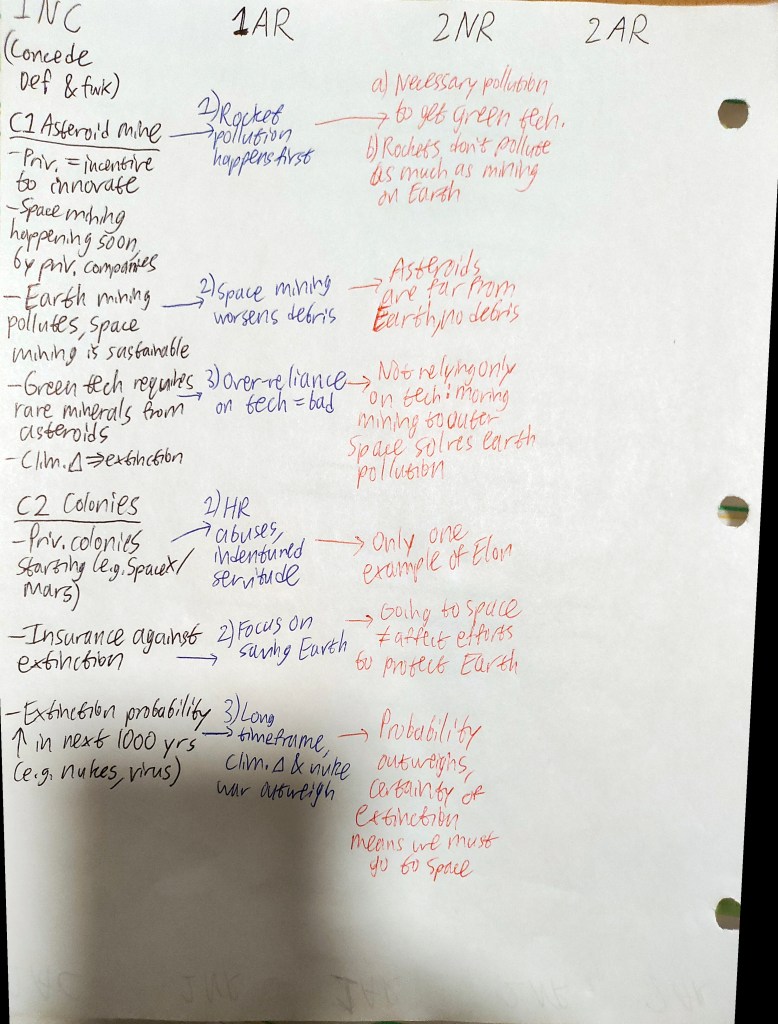 1NC
(Concede
Def & fwk)
C1 Asteroid mine
- Priv. = incentive
to innovate
- Space mining
happening soon,
by priv. companies
- Earth mining
pollutes, space
mining is sustainable
- Green tech requires
rare minerals from
asteroids
- Clim. Δ ⇒ extinction
C2 Colonies
- Priv. colonies
starting (e.g. SpaceX/
Mars)
- Insurance against
extinction
- Extinction probability
↑ in next 1000 yrs
(e.g. nukes, virus)
1AR
1) Rocket
pollution
happens first
2) Space mining
worsens debris
3) Over-reliance
on tech = bad
1) HR
abuses,
indentured
servitude
2) Focus on
saving Earth
3) Long
timeframe,
clim. Δ & nuke
war outweigh
2NR
a) Necessary pollution
to get green tech.
b) Rockets don't pollute
as much as mining
on Earth
Asteroids
are far from
Earth, no debris
Not relying only
on tech: moving
mining to outer
space solves earth
pollution
Only one
example of Elon
Going to space
≠ affect efforts
to protect Earth
Probability
outweighs,
certainty of
extinction
means we must
go to space
2AR